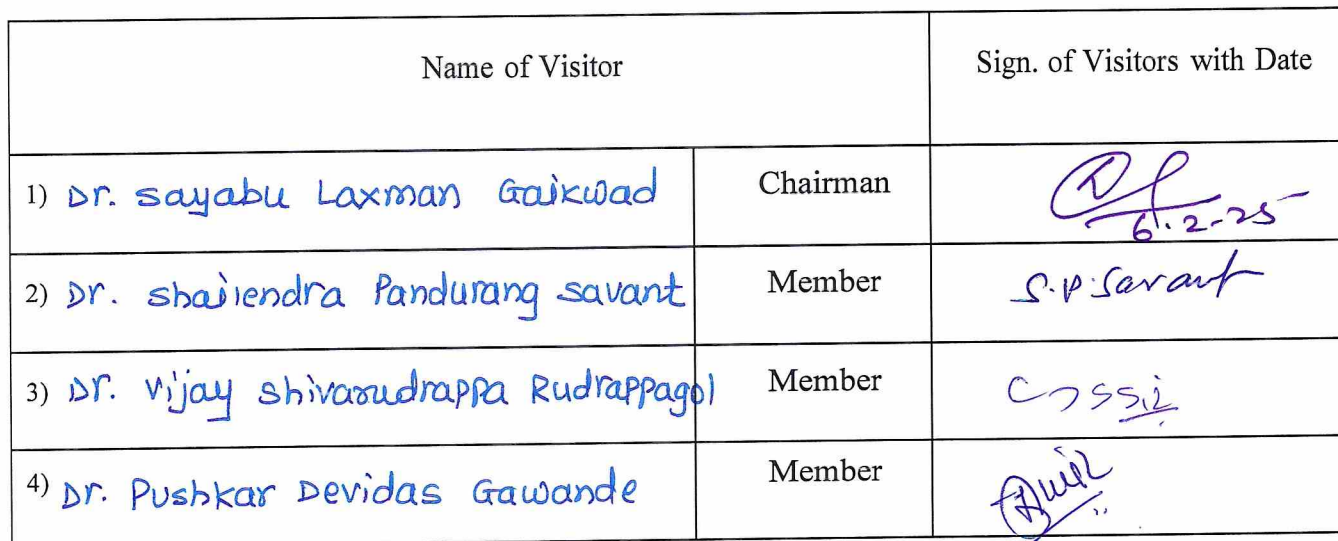 Name of Visitor
Sign. of Visitors with Date
1) Dr. Sayabu Laxman Gaikwad
Chairman
6.2-25
2) Dr. Shailendra Pandurang Savant
Member
S.P.Savant
3) Dr. Vijay Shivarudrappa Rudrappagol
Member
4) Dr. Pushkar Devidas Gawande
Member